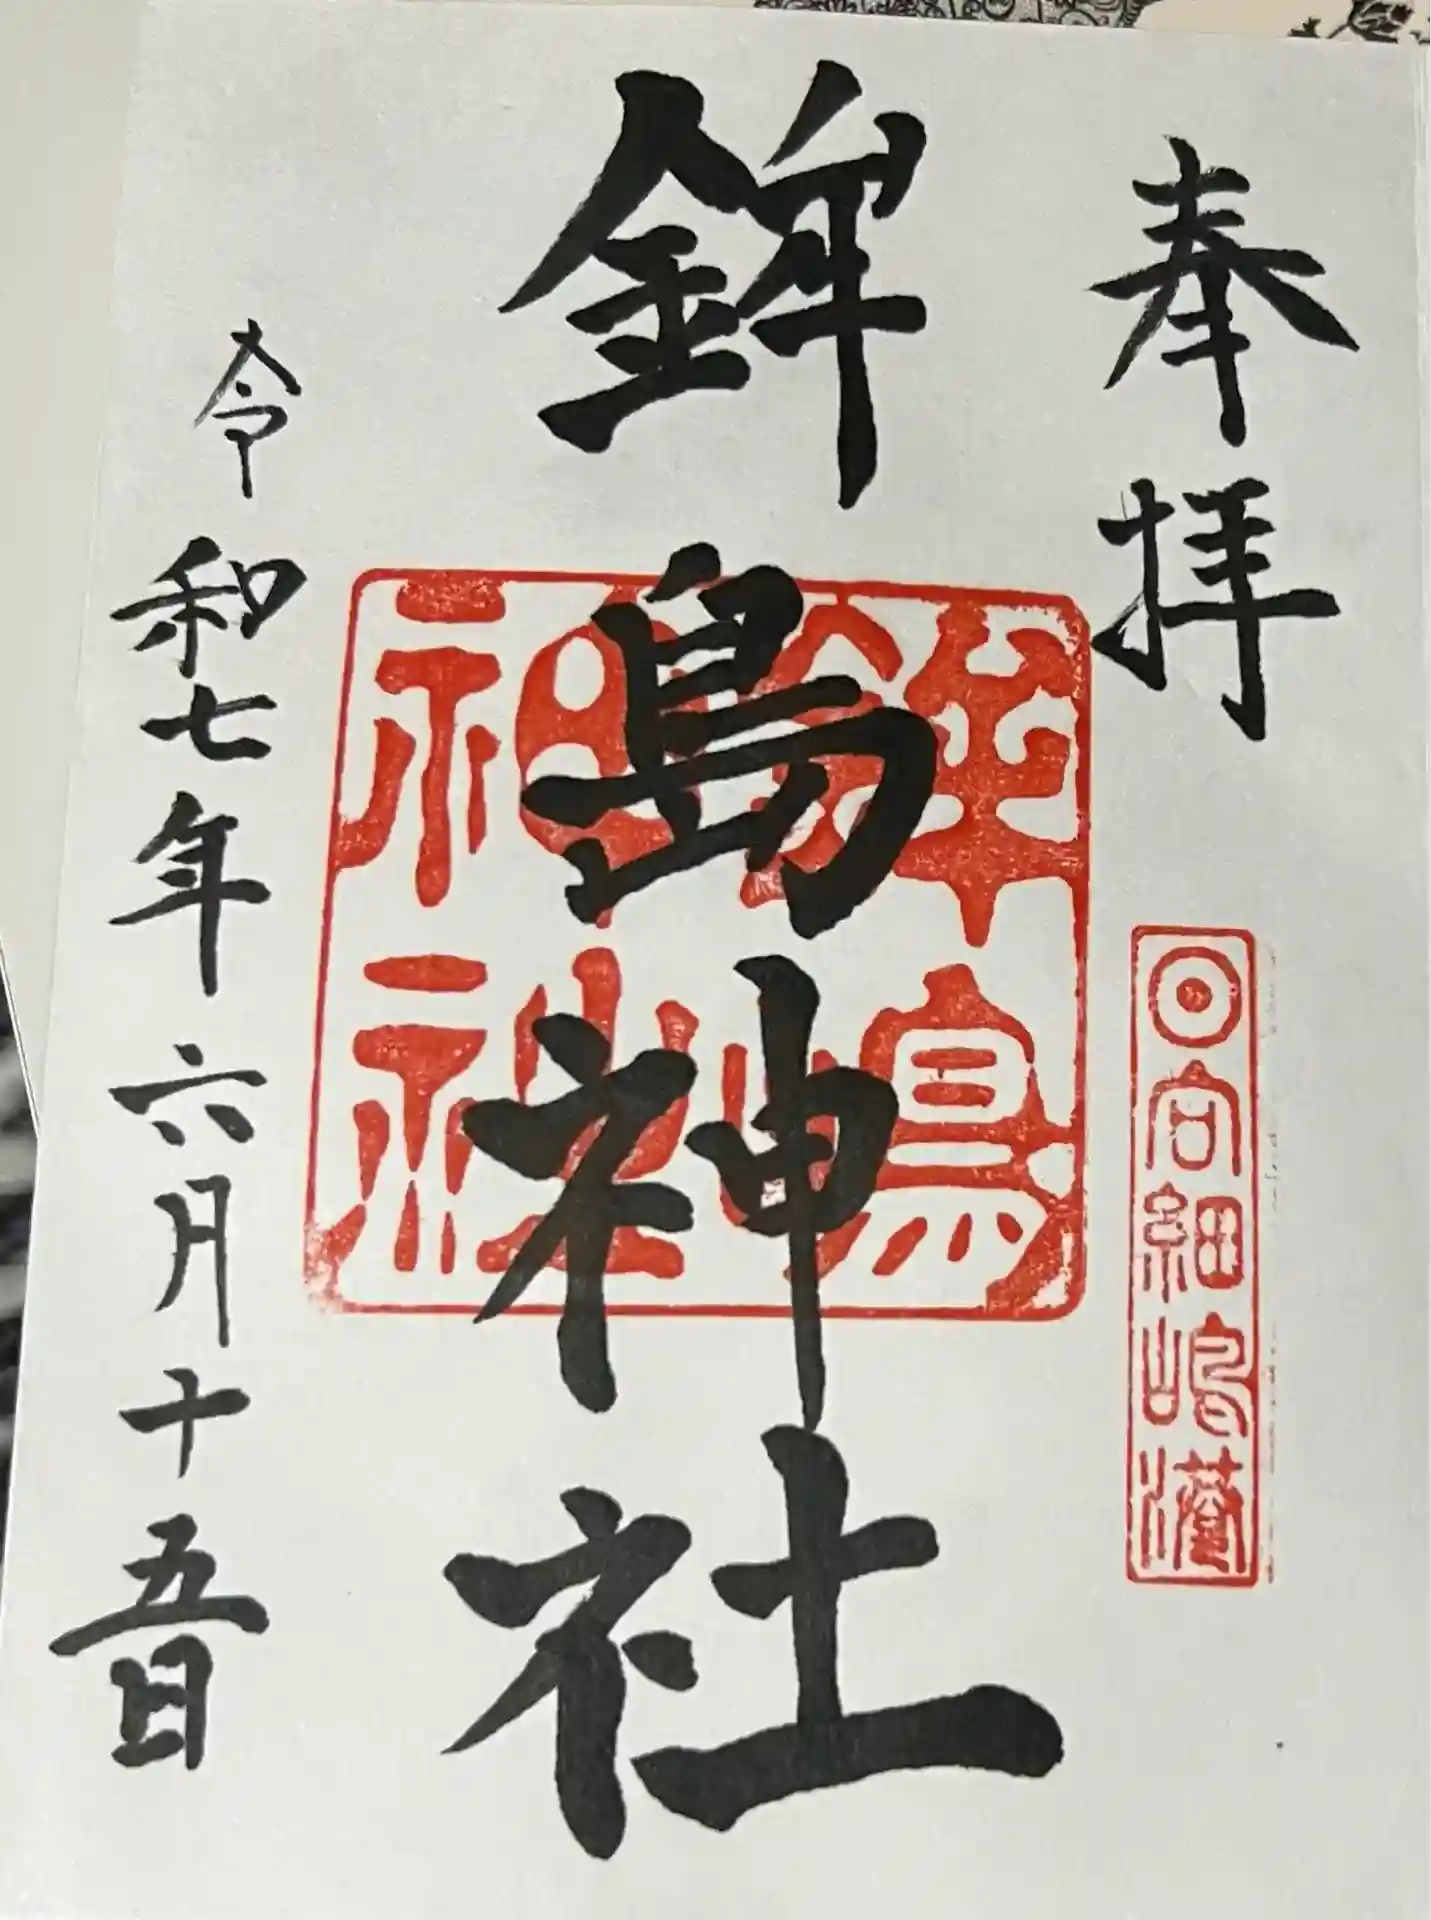 奉拝
日向細嶋港
鉾島神社
鉾嶋
神社
令和七年六月十五日